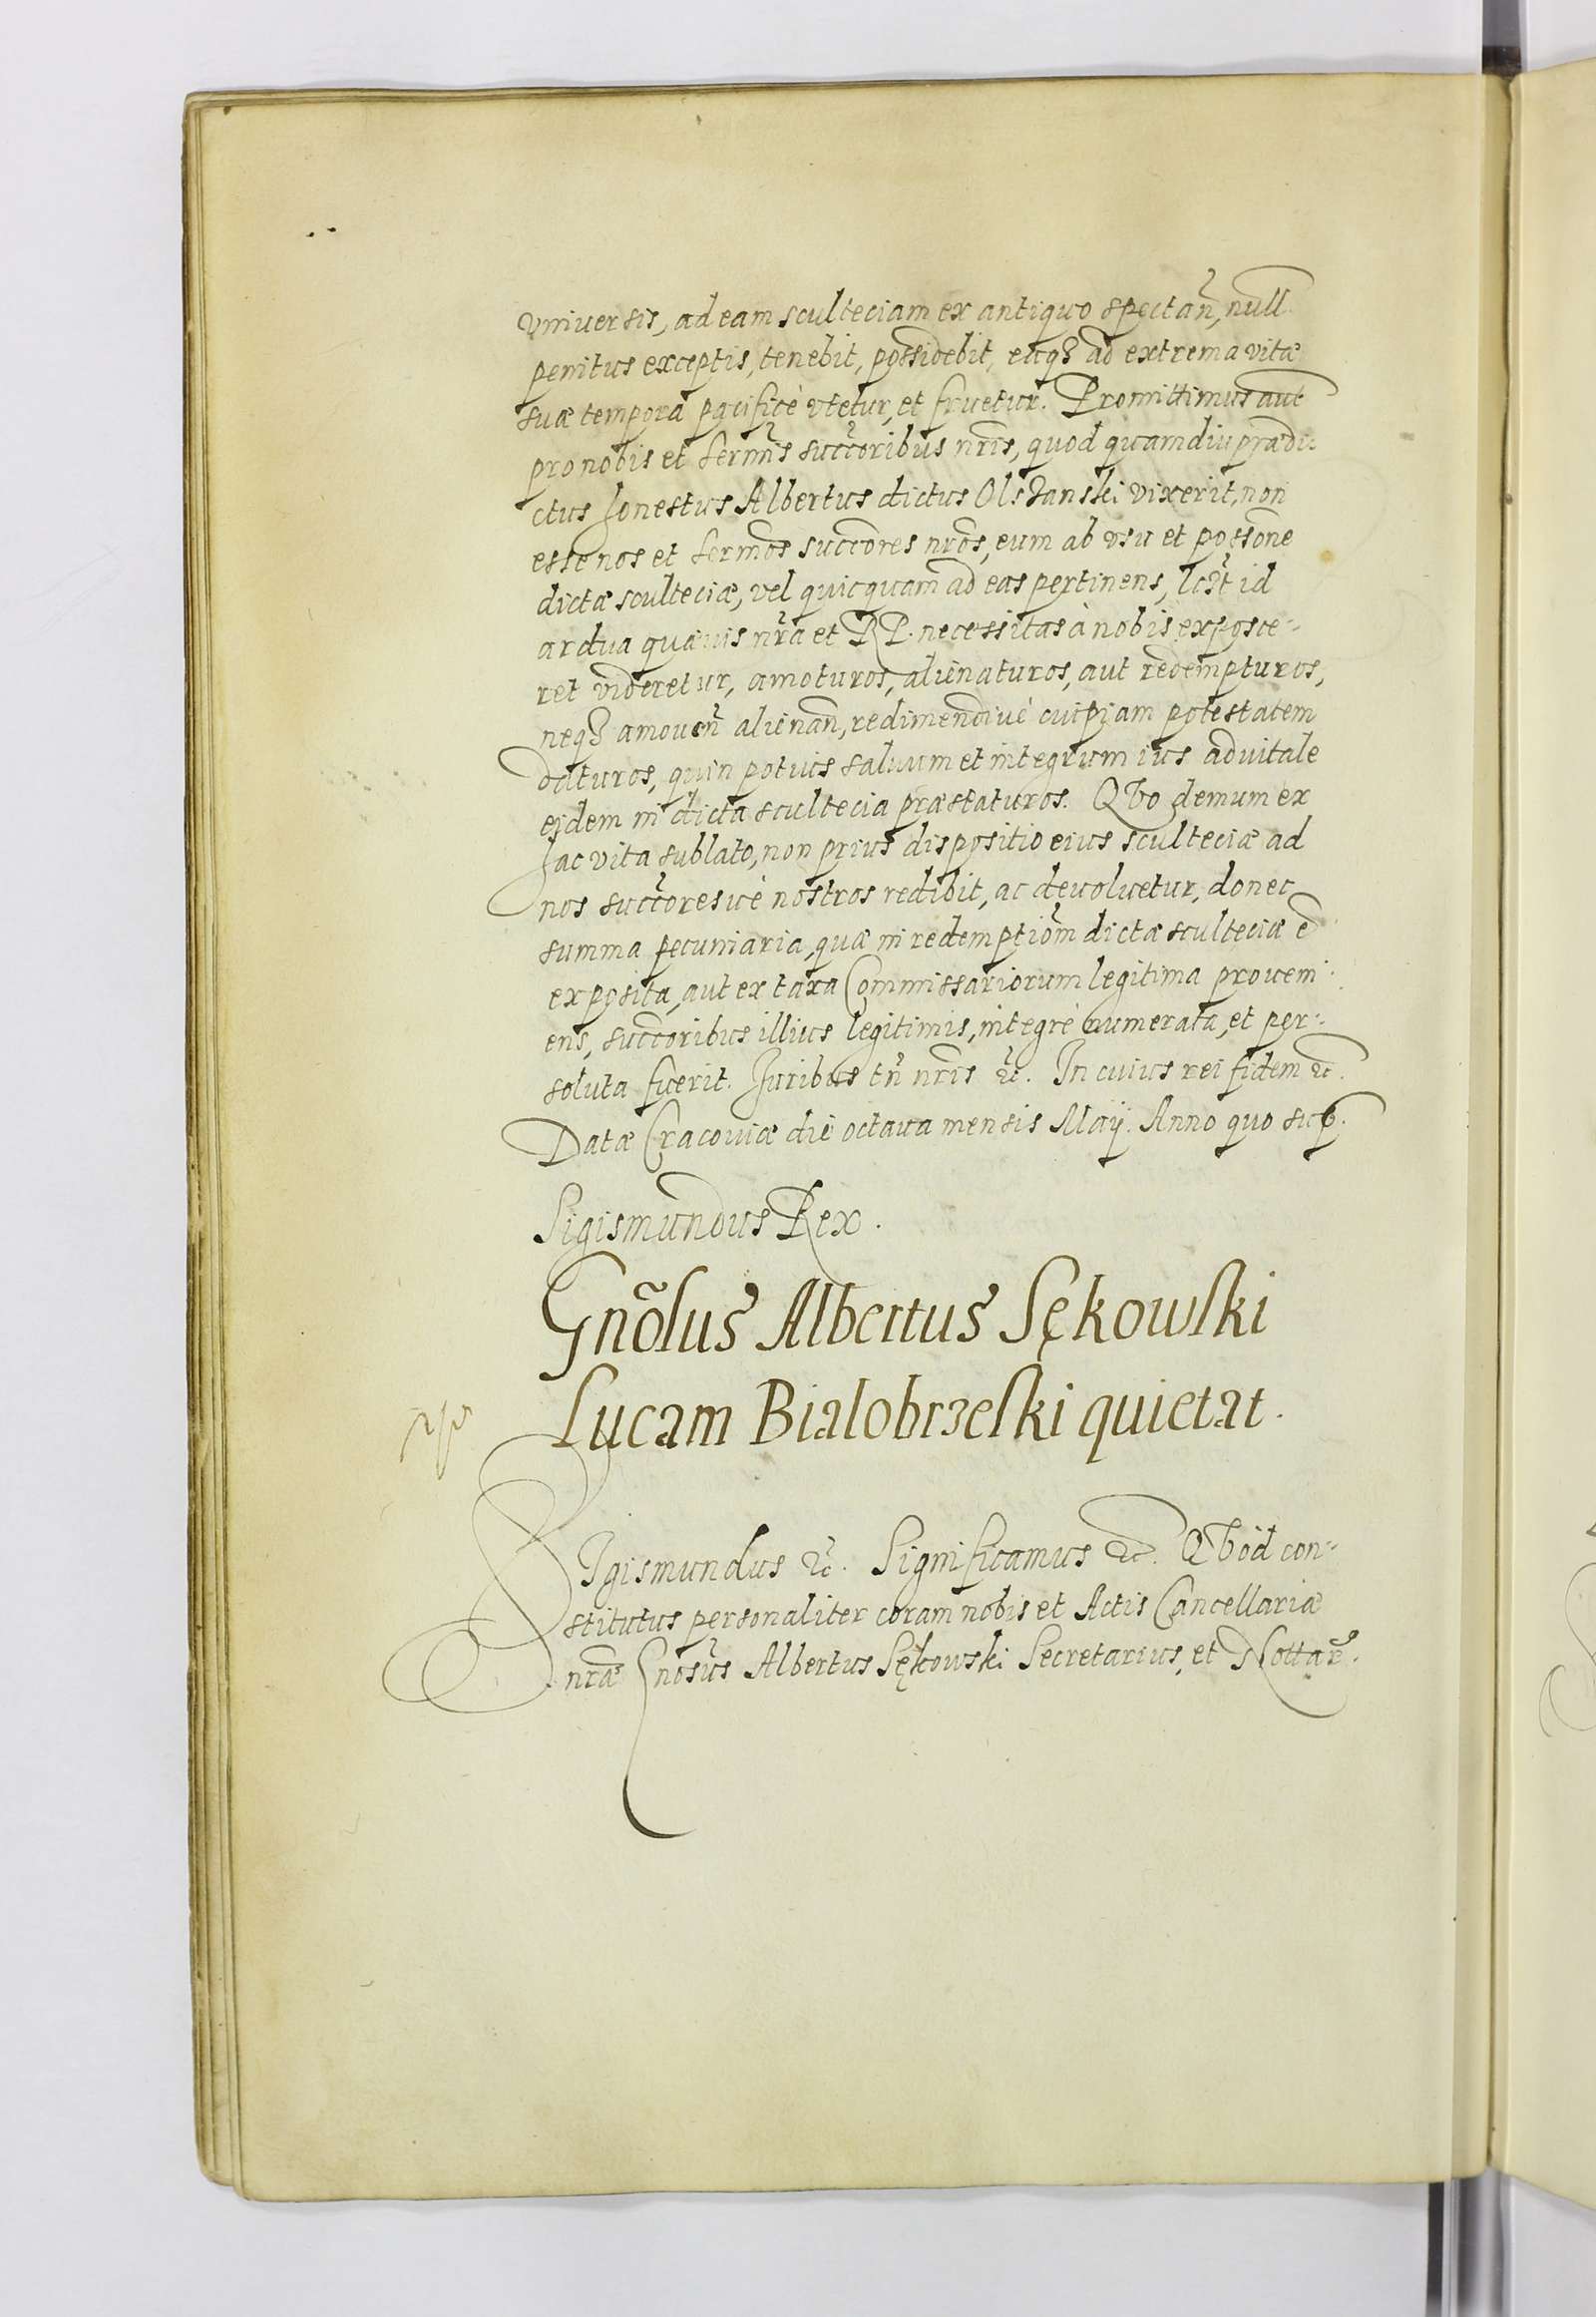 vniuersis, ad eam sculteciam ex antiquo spectan̄, null.
penitus exceptis, tenebit, possidebit, eaq₃ ad extrema vitæ
suæ tempora pacificè vtetur, et fruetur. Promittimus aut̄
pro nobis et Sermis̄ succ̄oribus nr̄is, quod quamdiu prædi-
ctus honestus Albertus dictus Olszanski vixerit, non
esse nos et Sermos̄ succ̄ores nr̄os, eum ab vsu et poss̄one
dictæ sculteciæ, vel quicquam ad eas pertinens, lc̄t id
ardua quæuis nr̄a et RP. necessitas à nobis exposce-
ret videretur, amoturos, alienaturos, aut redempturos,
neq₃ amouen̄ alienan̄, redimendiuè cuipiam potestatem
daturos, quin potius saluum et integrum ius aduitale
eidem in dicta scultecia præstaturos. Quo demum ex
hac vita sublato, non prius dispositio eius sculteciæ ad
nos succ̄oresuè nostros redibit, ac deuoluetur, donec
summa pecuniaria, quæ in redemptiōm dictæ sculteciæ ē
exposita, aut ex taxa Commissariorum legitima proueni-
ens, succ̄oribus illius legitimis, integrè numerata, et per-
soluta fuerit. Iuribus tn̄ nr̄is ꝛc̄. In cuius rei fidem ꝛc̄.
Datæ Cracouiæ die octaua mensis Maij. Anno quo sup̄.
Sigismundus Rex.
Gnōsus Albertus Sękowski
Lucam Bialobrzeski quietat.
SIgismundus ꝛc̄. Significamus ꝛc̄. Quod con-
stitutus personaliter coram nobis et Actis Cancellariæ
nr̄æ Gnosūs Albertus Sękowski Secretarius, et Nottar̄.